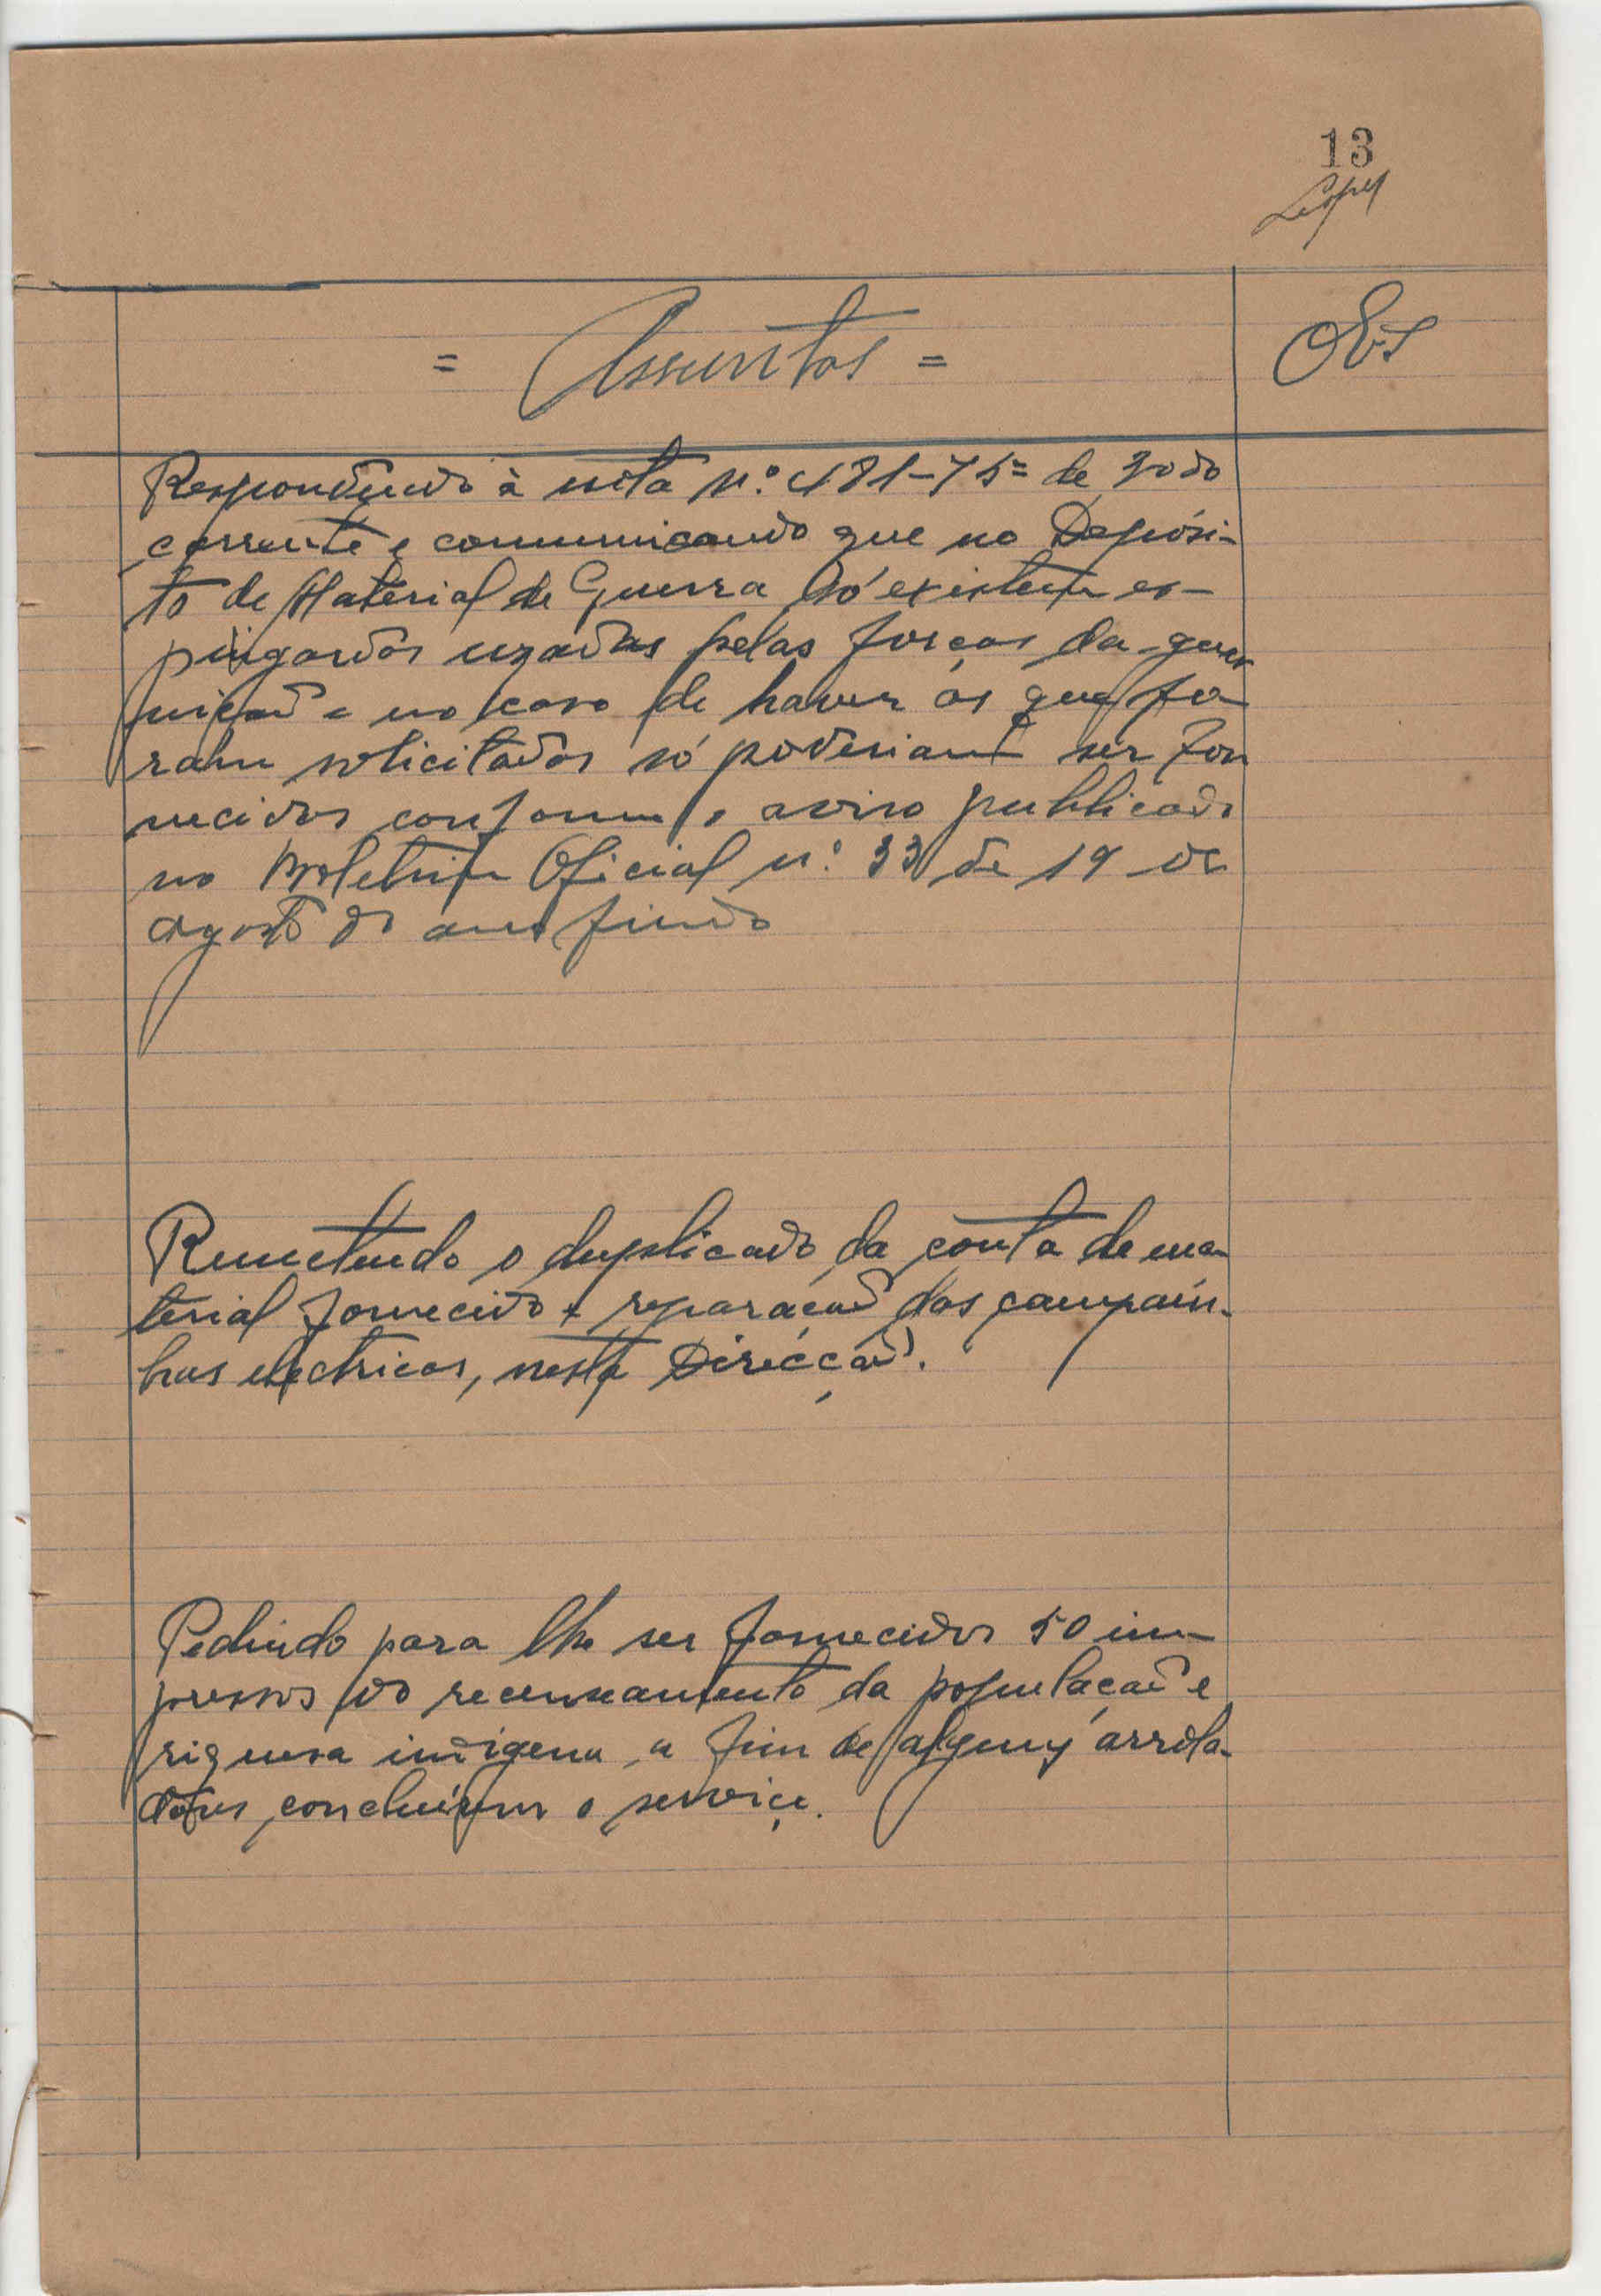 13
= Assuntos =
Obs
Respondendo à nota n.º 481-75= de 30 do
corrente e comunicando que no Depósi-
to de Material de Guerra só existem es-
pingardas uzadas pelas forças da guar
nição e no caso de haver as que fo
ram solicitadas só poderiam ser for
necidos conforme o aviso publicado
no Boletim Oficial n.º 33 de 19 de
Agosto do ano findo
Remetendo o duplicado da conta de ma
terial fornecido e reparação das campaín-
has electricas, nesta Direcção.
Pedindo para lhe ser fornecidos 50 im-
pressos do recenseamento da população e
riquesa indigena a fim de alguns arrola-
dores concluirem o serviço.